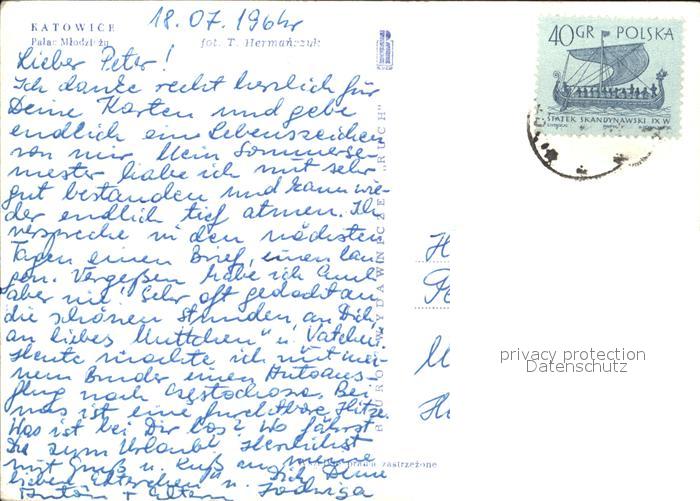 KATOWICE
Pałac Młodzieży
fot. T. Hermańczyk
18.07.1964r
Lieber Peter!
Ich danke recht herzlich für
Deine Karten und gebe
endlich ein Lebenszeichen
von mir. Mein Sommerse-
mester habe ich mit sehr
gut bestanden und kann wie-
der endlich tief atmen. Ich
verspreche in den nächsten
Tagen einen Brief, einen lan
gen. Vergeßen habe ich Euch
aber nie! Sehr oft gedacht an
die schönen Stunden, an Dich,
an liebes Muttchen" u. Vatchen.
Heute machte ich mit mei-
nem Bruder einen Autoaus-
flug nach Częstochowa. Bei
uns ist eine furchtbare Hitze.
Was ist bei Dir los? Wo fährst
Du zum Urlaub? Herzlichst
mit Gruß u. Kuß an meine
lieben u. Dich Deine
+ Eltern Jadwiga
BIURO WYDAWNICZE „RUCH"
prawa zastrzeżone
40GR POLSKA
STATEK SKANDYNAWSKI IX W
privacy protection
Datenschutz